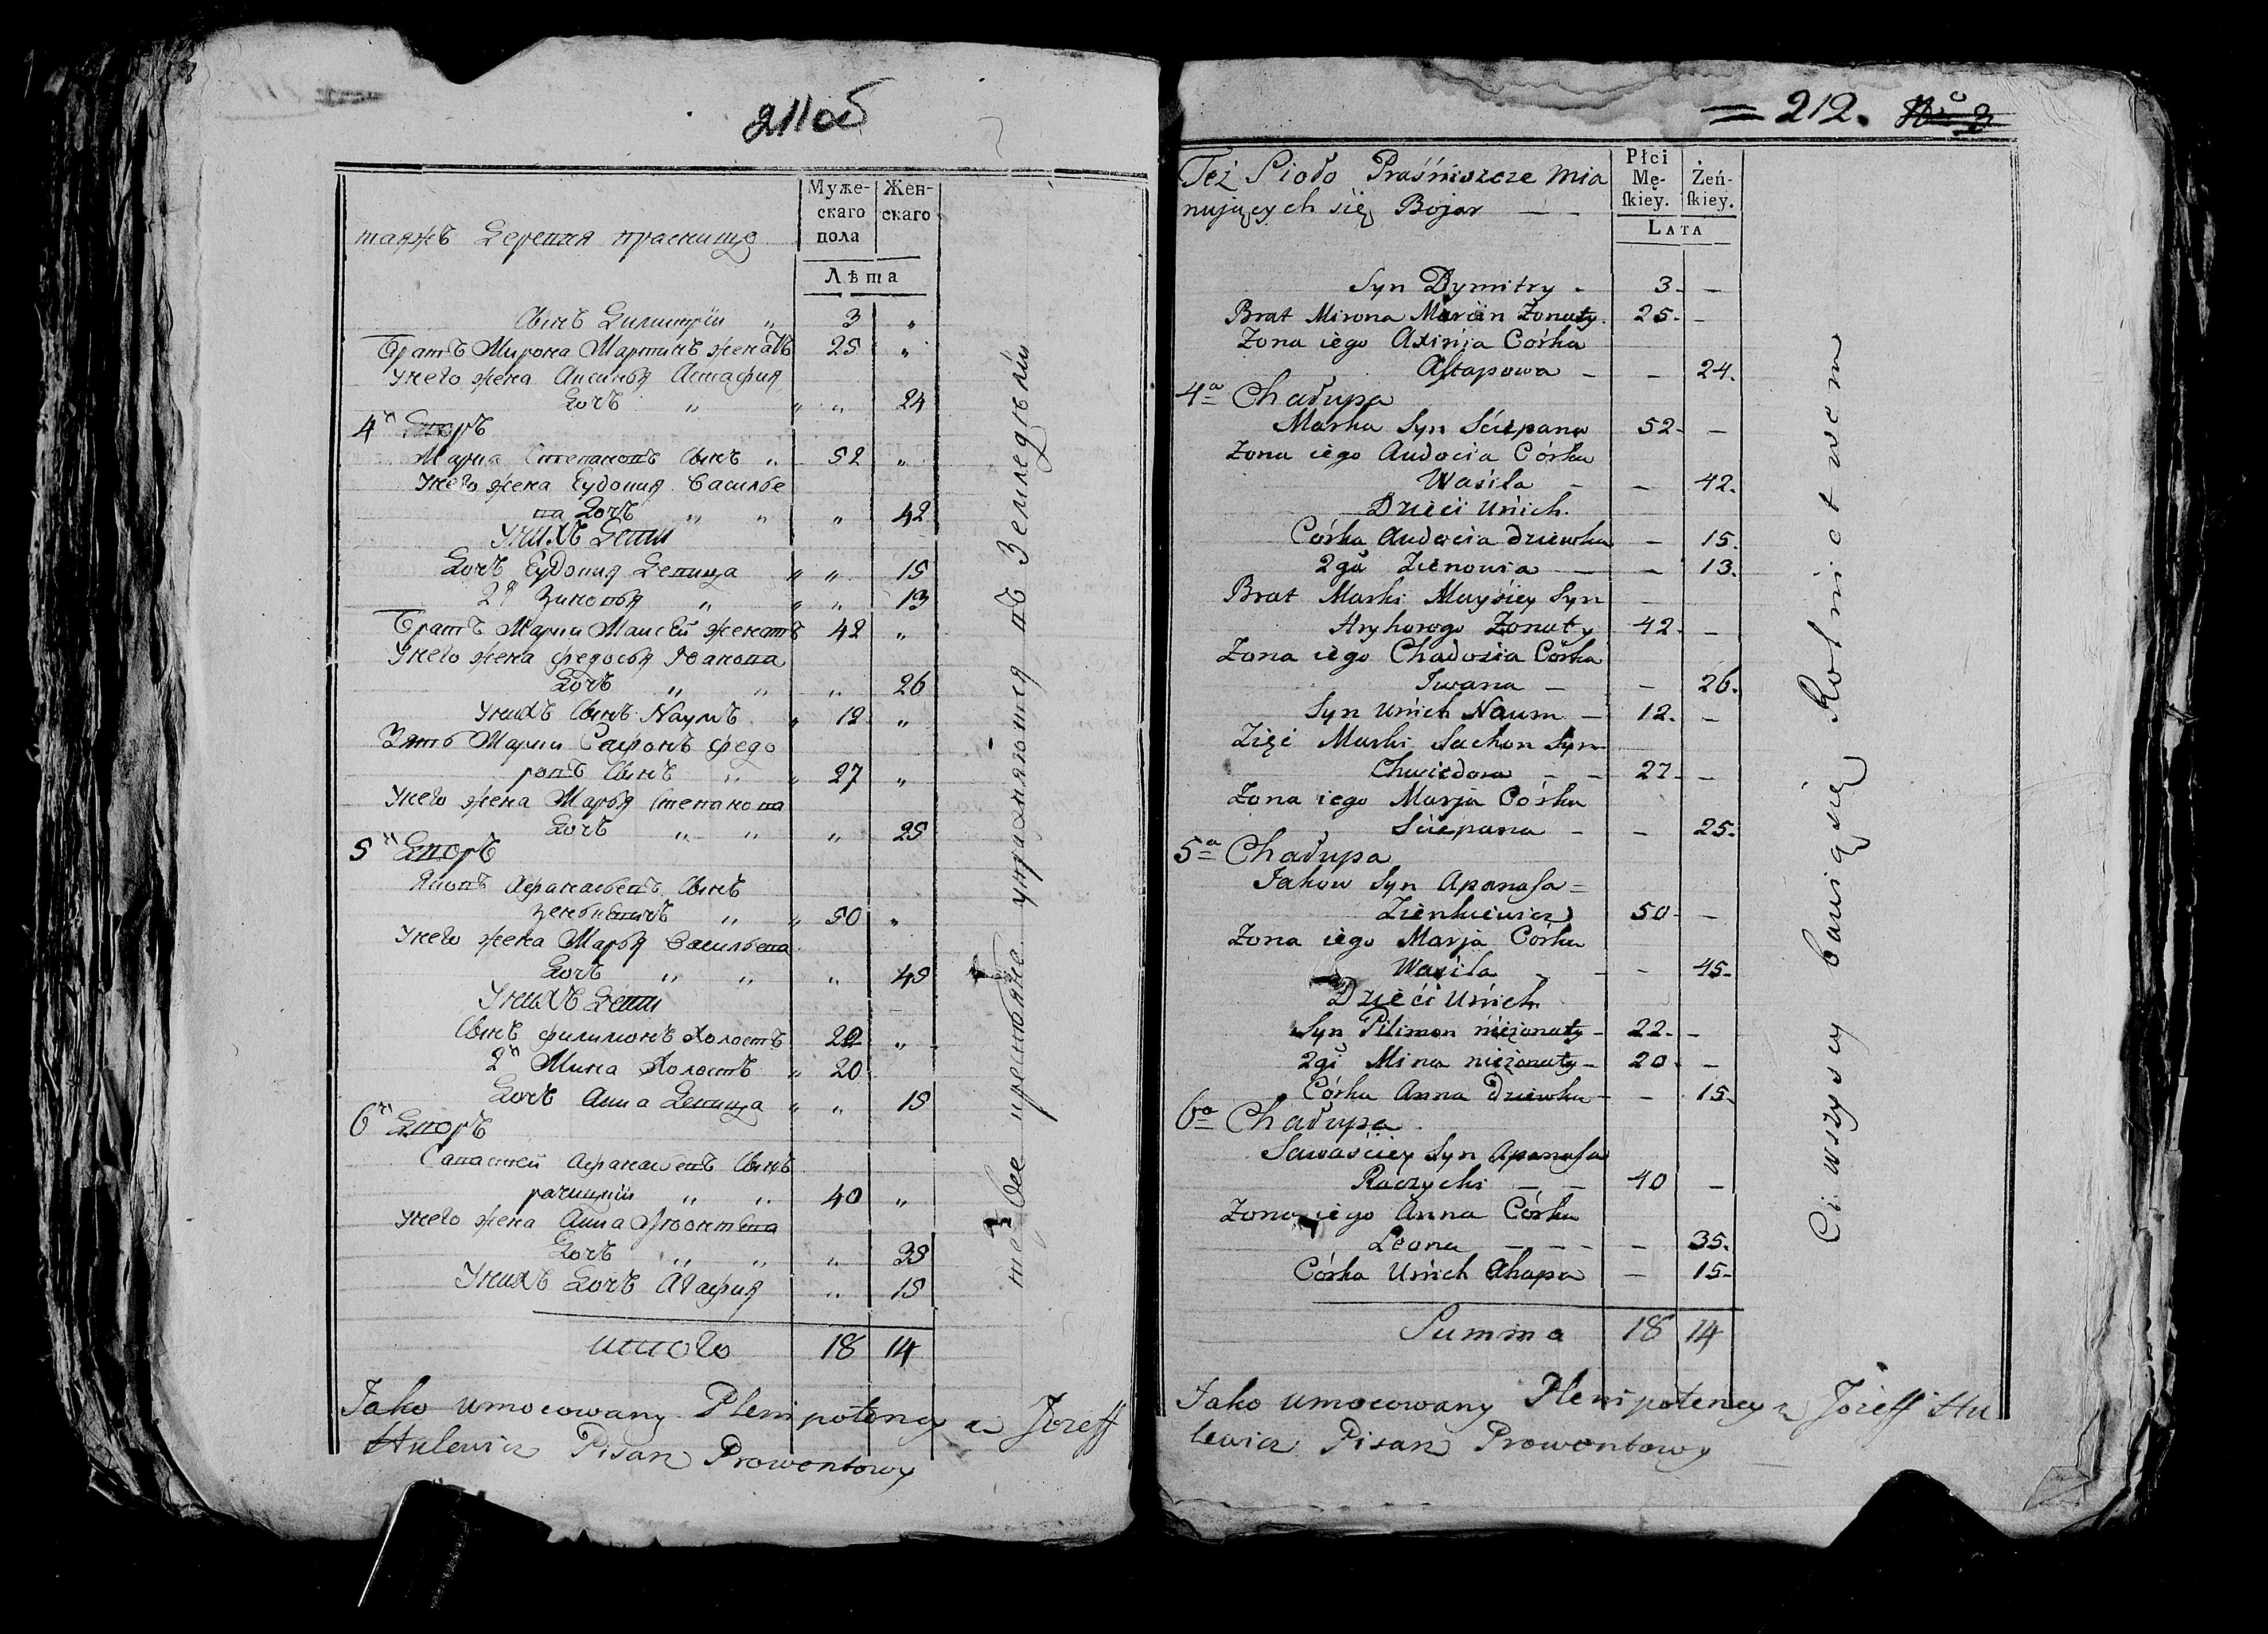 211об
Муже-
скаго
пола
Жен-
скаго
таяжъ деревня праснище
Лѣта
Сынъ Димитрїи „ 3 „
братъ Мирона Мартинъ женатъ 25 „
Унего жена Аксинья Астафия
дочь „ „ „ 24
4й дворъ
Марка Степановъ Сынъ „ 52 „
Унего жена Еудокия Василье
ва дочь „ „ „ 42
Унихъ дети
дочь Еудокия девица „ „ 15
2я Зиновья „ „ „ 13
братъ Марки Маисѣй женатъ 42 „
Унего жена федосья Иванова
дочь „ „ „ 26
Унихъ Сынъ Наумъ „ 12 „
Зять Марки Сафонъ федо
ровъ Сынъ „ „ 27 „
Унего жена Марья Степанова
дочь „ „ „ 25
5й дворъ
Яковъ Афанасьевъ Сынъ
зенькевичъ „ „ 50 „
Унего жена Марья Васильева
дочь „ „ „ 45
Унихъ дети
Сынъ филимонъ холостъ 22 „
2й Мина холостъ „ 20
дочь Анна девица „ „ 15
6й дворъ
Савастей Афанасьевъ Сынъ
рачицкїи „ „ 40 „
Унего жена Анна Леонтьева
дочь „ „ „ 35
Унихъ дочь Агафия „ 15
итого 18 14
все крестьяне упражняются въ Земледѣлїи
Jako umocowany Plenipotency a Jozeff
Hulewicz Pisarz Prowentowy
= 212.
Też Sioło Praśniszcze mia
nujących się Bojar — —
Płci
Mę-
ſkiey.
Żeń-
ſkiey.
LATA
Syn Dymitry - 3- —
Brat Mirona Marcin Żonaty. 25- —
Żona iego Axinia Córka
Aſtapowa — — 24.
4a Chałupa
Marka Syn Sciepana 52- —
Żona iego Audocia Córka
Wasila — — 42.
Dzieci Unich.
Córka Audocia dziewka — 15.
2ga Zienowia — — 13.
Brat Marki Maysiey Syn —
Hryhorego Żonaty 42- —
Żona iego Chadosia Córka
Iwana — — 26.
Syn Unich Naum — 12- —
Zięć Marki Sachon Syn
Chwiedora — — 27- —
Żona iego Marja Córka
Sciepana — — 25-
5a Chałupa
Jakow Syn Apanaſa =
Zienkiewicz 50- —
Żona iego Marja Córka
Wasila — — — 45-
Dzieci Unich
Syn Pilimon nieżonaty — 22- —
2gi Mina nieżonaty — 20- —
Córka Anna Dziewka — — 15-
6a Chałupa
Sawaściey Syn Apanaſa
Raczycki — — 40 —
Żona iego Anna Córka
Leona — — — — 35-
Córka Unich Ahapa — 15-
Summa 18 14
Ci wszyscy bawią się Rolnictwem
Jako umocowany Plenipotency a Jozeff Hu
lewicz Pisarz Prowentowy